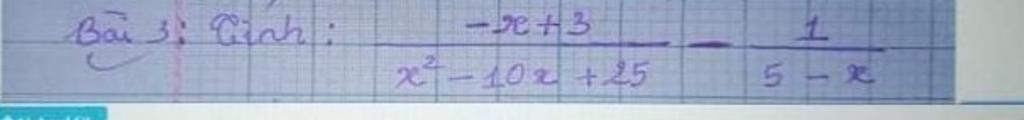 Bài 3: Tính: \frac{-x+3}{x^2-10x+25} - \frac{1}{5-x}